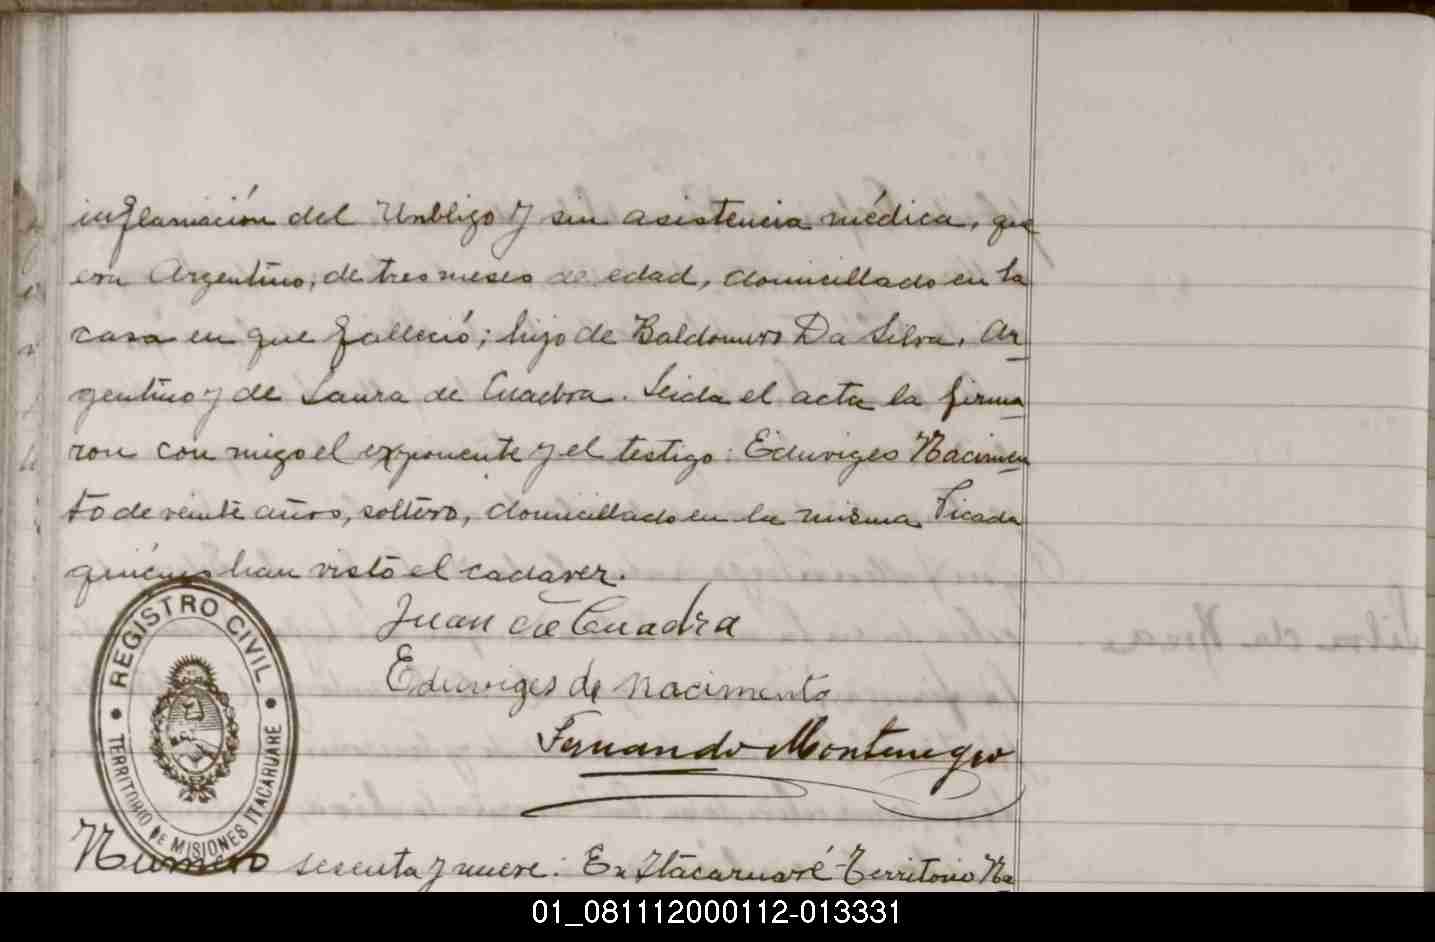 inflamación del Unbligo y sin asistencia médica, que
era Argentino, de tres meses de edad, domicillado en la
casa en que falleció; hijo de Baldomero Da Silva, Ar-
gentino y de Laura de Cuadra. Leida el acta la firma-
ron con migo el exponente y el testigo: Eduviges Nacimen-
to de veinte años, soltero, domicillado en la misma Picada
quiénes han visto el cadaver.
Juan de Cuadra
Eduviges de nacimento
Fernando Montenegro
REGISTRO CIVIL
TERRITORIO DE MISIONES ITACARUARÉ
Número sesenta y nueve: En Itacaruaré Territorio Na-
01_081112000112-013331